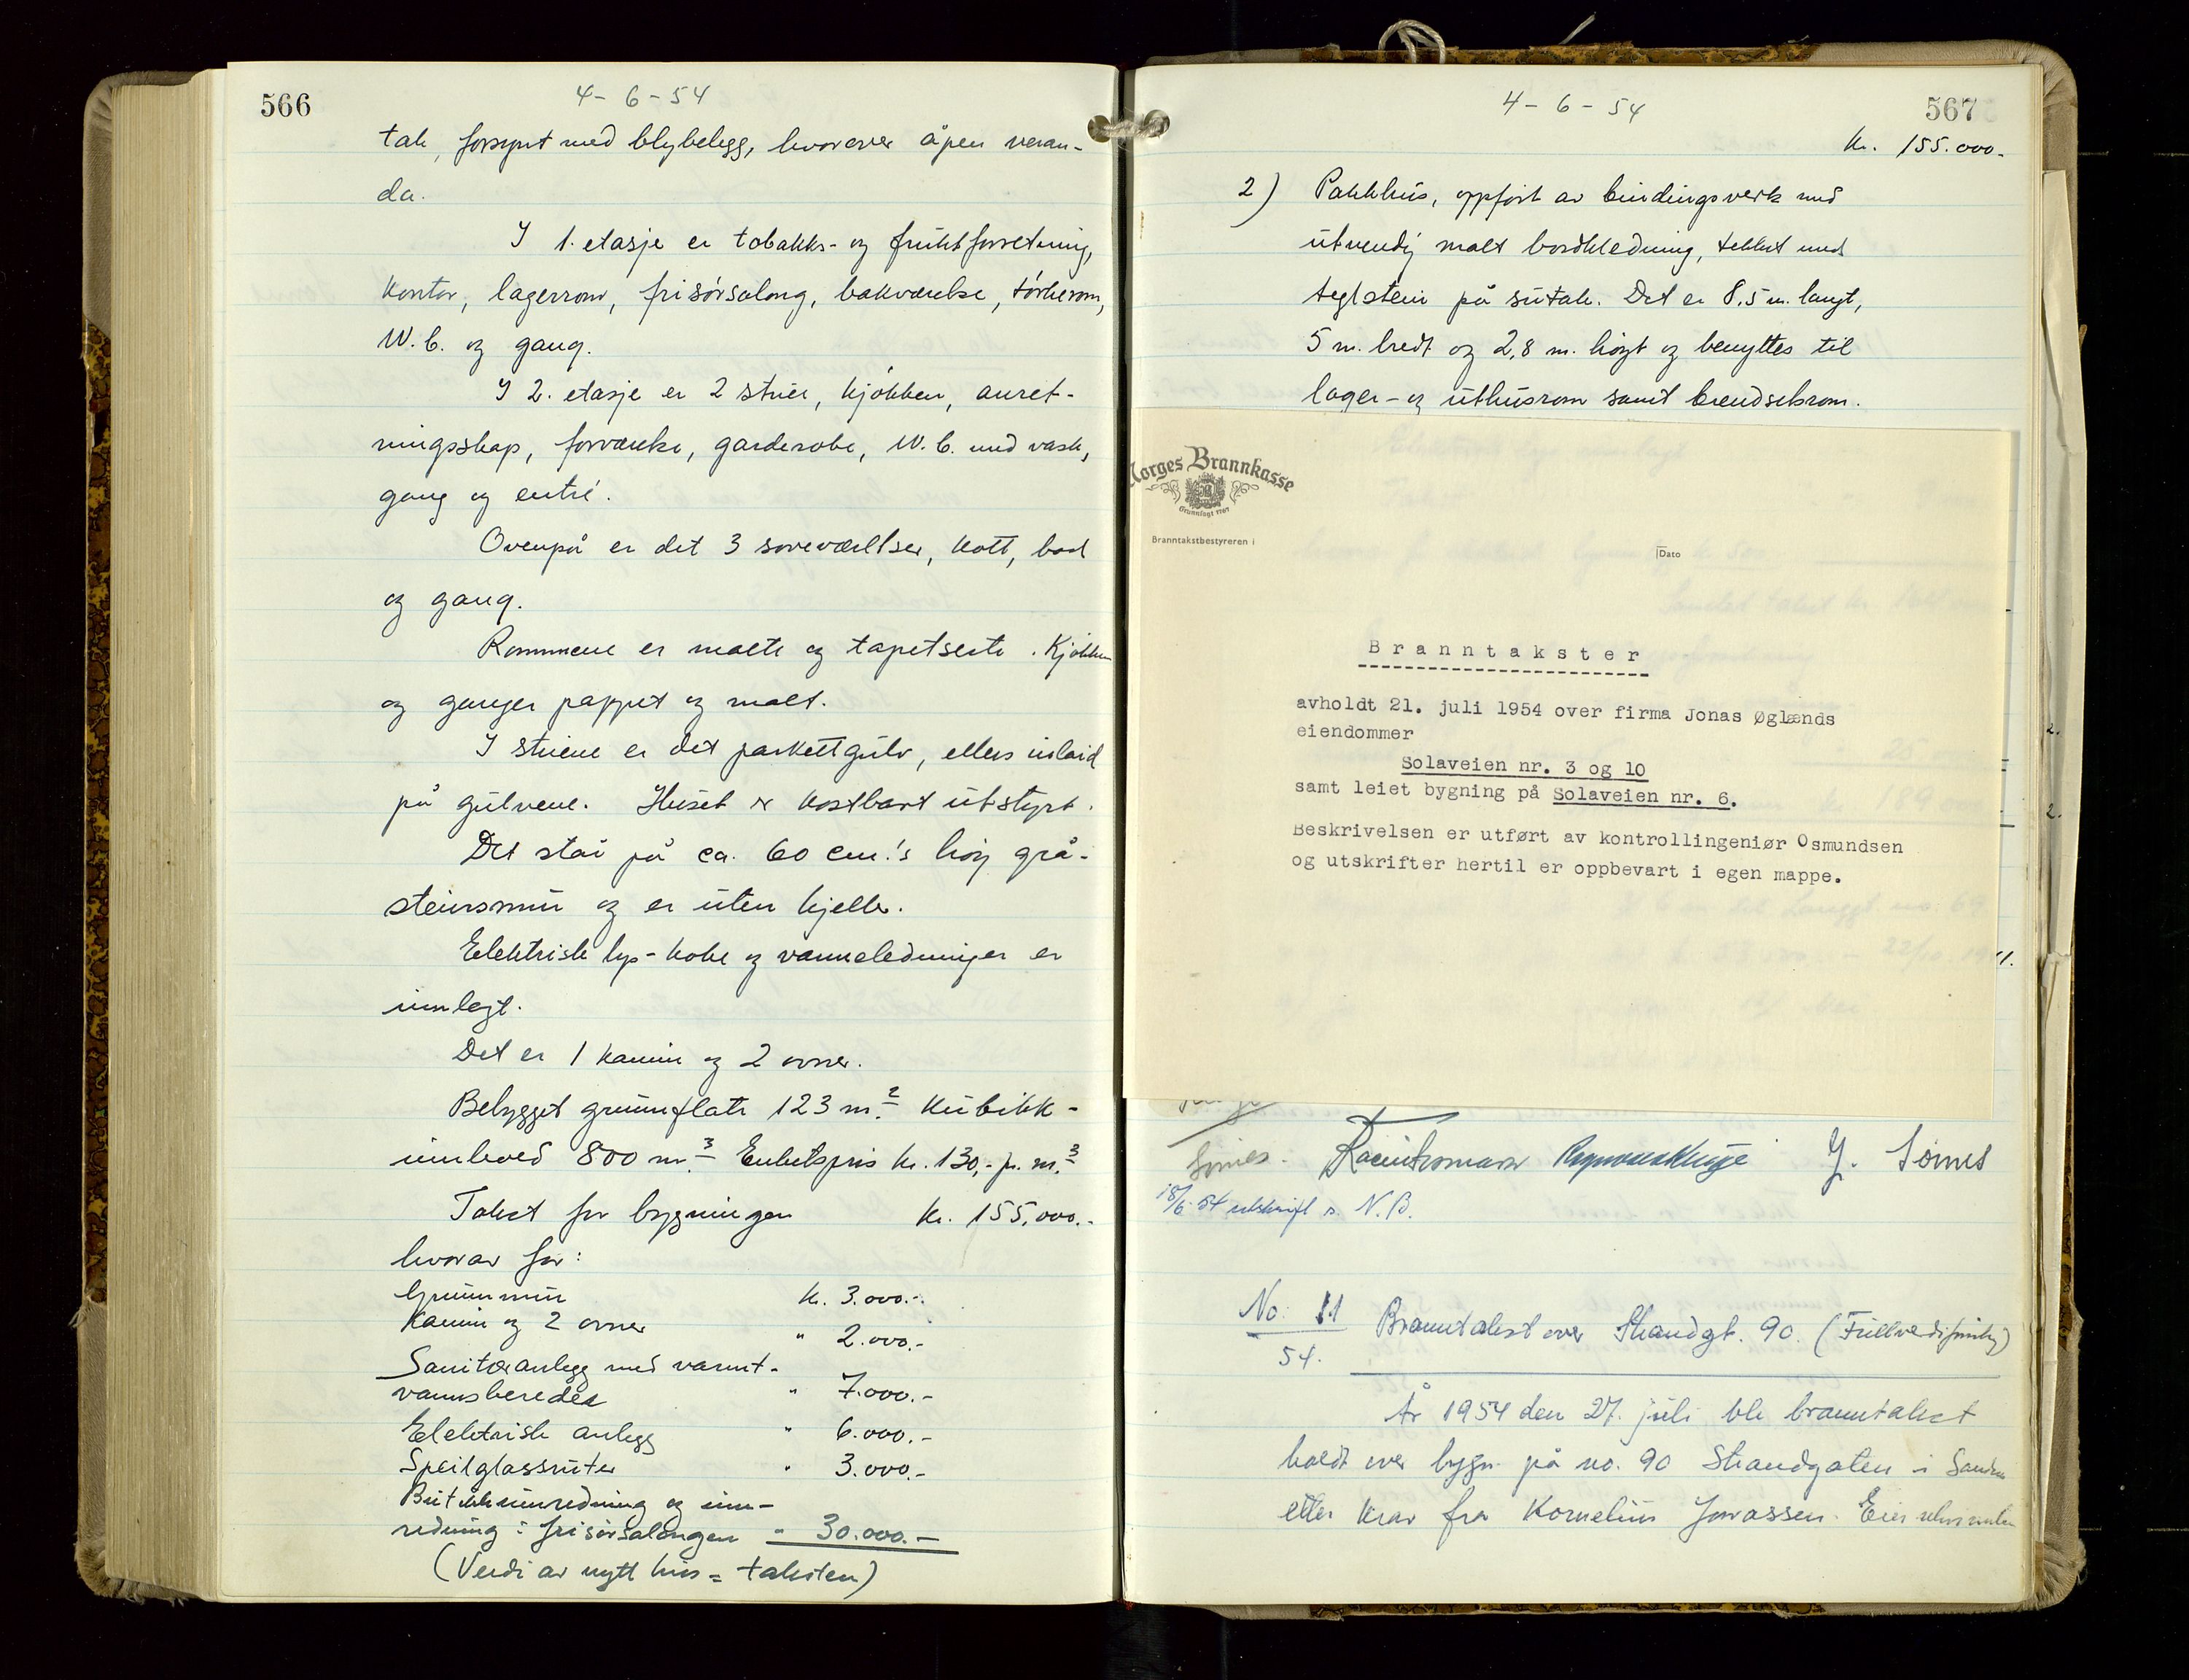 566
4-6-54
tak, forsynt med blybelegg, hvorover åpen veran-
da.
I 1. etasje er tobakks- og fruktforretning,
kontor, lagerrom, frisørsalong, bakværelse, tørkerom,
W.C. og gang.
I 2. etasje er 2 stuer, kjøkken, anret-
ningsskap, forværelse, garderobe, W.C. med vask,
gang og entré.
Ovenpå er det 3 soveværelser, kott, bad
og gang.
Rommene er malte og tapetserte. Kjøkken
og ganger pappet og malt.
I stuene er det parkettgulv, ellers inlaid
på gulvene. Huset er kostbart utstyrt.
Det står på ca. 60 cm.'s høy grå-
steinsmur og er uten kjeller.
Elektrisk lys- koke og varmeledninger er
innlagt.
Det er 1 kamin og 2 ovner.
Bebygget grunnflate 123 m.2 Kubikk-
innhold 800 m.3 Enhetspris kr. 130,- pr. m.3
Takst for bygningen kr. 155.000.-
hvorav for:
Grunnmur kr. 3.000.-
Kamin og 2 ovner " 2.000.-
Sanitæranlegg med varmt-
vannsbereder " 7.000.-
Elektrisk anlegg " 6.000.-
Speilglassruter " 3.000.-
Butikkinnredning og inn-
redning i frisørsalongen " 30.000.-
(Verdi av nytt hus = taksten)
567
4-6-54
Kr. 155.000-
2) Pakkhus, oppført av bindingsverk med
utvendig malt bordkledning, tekket med
teglstein på sutak. Det er 8,5 m. langt,
5 m. bredt og 2,8 m. høyt og benyttes til
lager- og uthusrom samt brendselsrom.
Norges Brannkasse
Grunnlagt 1767
Branntakstbestyreren i
Dato
Branntakster
avholdt 21. juli 1954 over firma Jonas Øglænds
eiendommer
Solaveien nr. 3 og 10
samt leiet bygning på Solaveien nr. 6.
Beskrivelsen er utført av kontrollingeniør Osmundsen
og utskrifter hertil er oppbevart i egen mappe.
18/6-54 utskrift s. N.B.
No. 11 Branntakst over Strandgt. 90. (Fullverdiforsikr)
54.
År 1954 den 27. juli ble branntakst
holdt over bygn. på no. 90 Strandgaten i Sandnes
etter krav fra Kornelius Jonassen. Eier